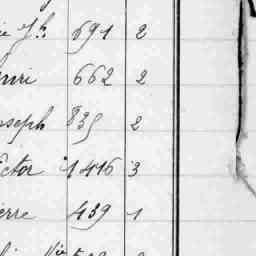 691 2
662 2
oseph 835 2
ictor 1416 3
ierre 439 1